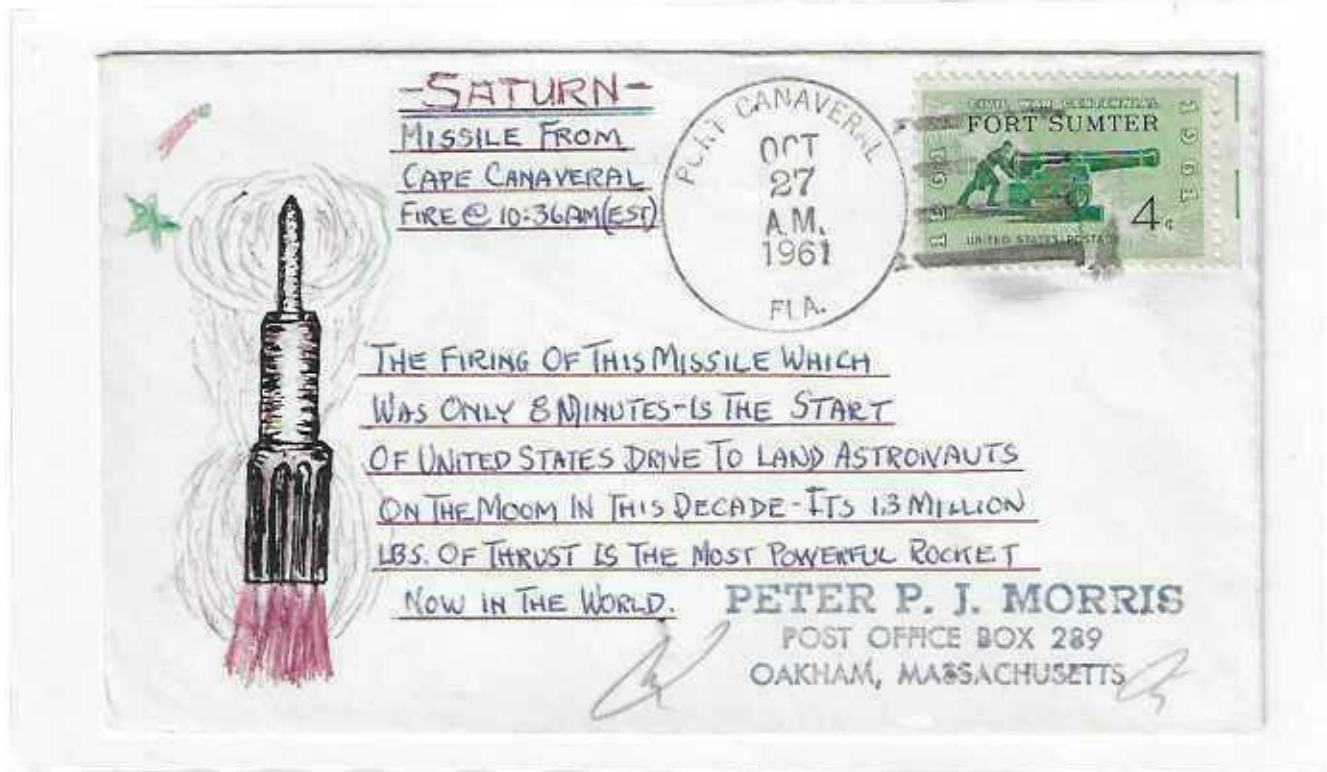 -SATURN-
MISSILE FROM
CAPE CANAVERAL
FIRE @ 10:36AM(EST)
PORT CANAVERAL
OCT
27
A.M.
1961
FLA.
CIVIL WAR CENTENNIAL
FORT SUMTER
1861
1961
4¢
UNITED STATES POSTAGE
THE FIRING OF THIS MISSILE WHICH
WAS ONLY 8 MINUTES-IS THE START
OF UNITED STATES DRIVE TO LAND ASTRONAUTS
ON THE MOOM IN THIS DECADE-ITS 1.3 MILLION
LBS. OF THRUST IS THE MOST POWERFUL ROCKET
NOW IN THE WORLD.
PETER P. J. MORRIS
POST OFFICE BOX 289
OAKHAM, MASSACHUSETTS